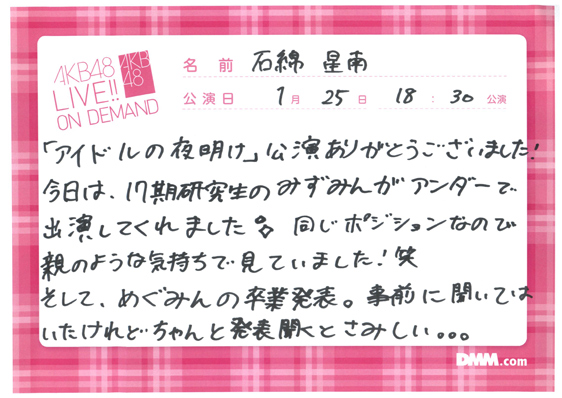 AKB48
LIVE!!
ON DEMAND
AKB
48
名前 石綿 星南
公演日 1月 25日 18:30 公演
「アイドルの夜明け」公演ありがとうございました!
今日は、17期研究生のみずみんがアンダーで
出演してくれました 同じポジションなので
親のような気持ちで見ていました!笑
そして、めぐみんの卒業発表。事前に聞いては
いたけれどちゃんと発表聞くとさみしい。。。
DMM.com